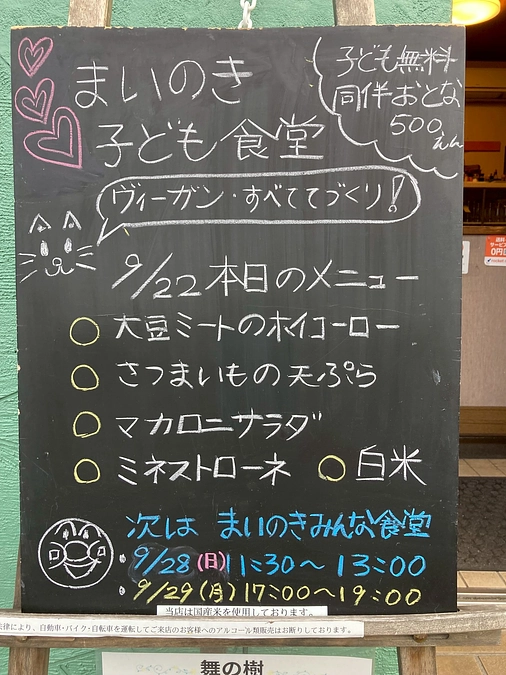 まいのき
子ども食堂
子ども無料
同伴おとな
500えん
ヴィーガン・すべててづくり!
9/22 本日のメニュー
○ 大豆ミートのホイコーロー
○ さつまいもの天ぷら
○ マカロニサラダ
○ ミネストローネ ○ 白米
次は まいのきみんな食堂
9/28(日)11:30〜13:00
9/29(月)17:00〜19:00
当店は国産米を使用しております。
律により、自動車・バイク・自転車を運転してご来店のお客様へのアルコール類販売はお断りしております。
舞の樹
0円